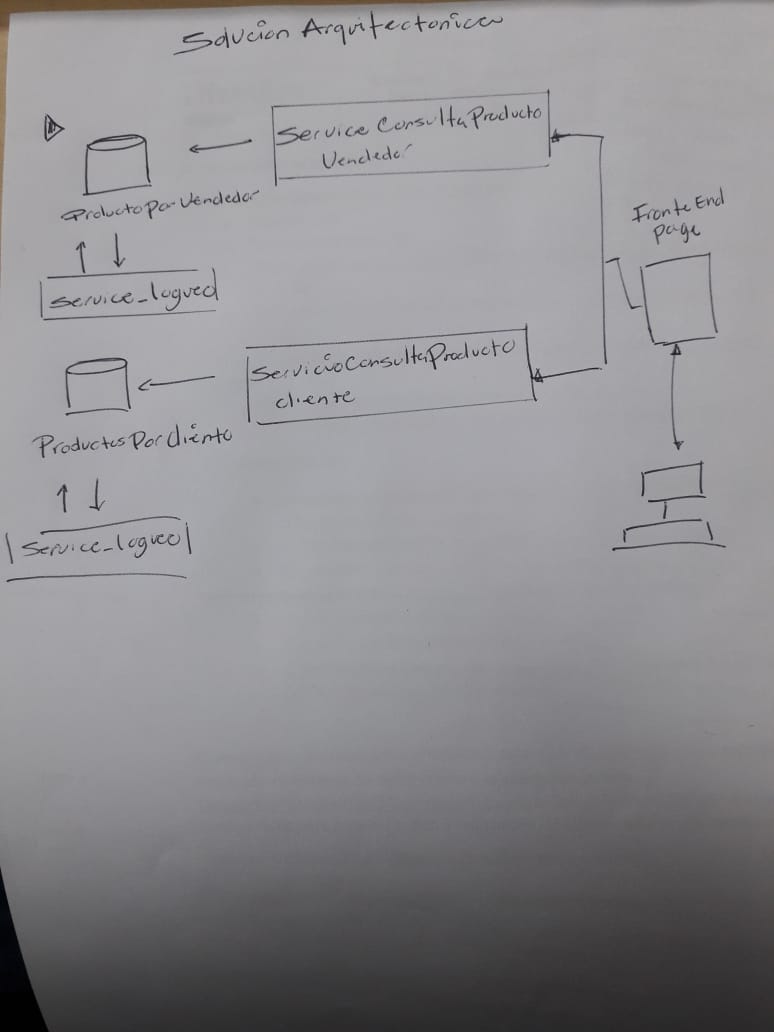 Solucion Arquitectonica
Service Consulta Producto
Vendedor
ProductoporVendedor
Service_logueo
FronteEnd
page
ServicioConsultaProducto
cliente
ProductosPorCliente
Service_logueo